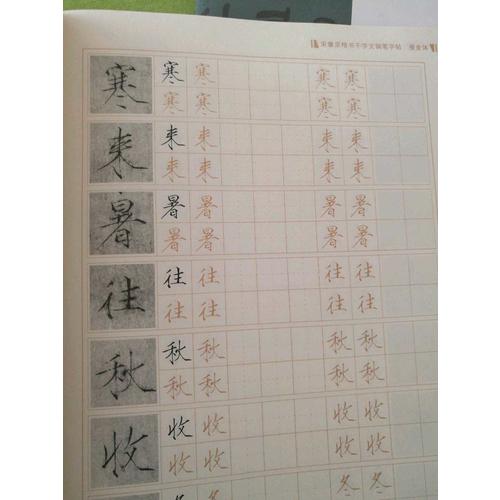 宋徽宗楷书千字文钢笔字帖 瘦金体
寒 寒 寒 寒 寒
寒 寒 寒 寒
来 来 来 来 来
来 来 来 来
暑 暑 暑 暑 暑
暑 暑 暑 暑
往 往 往 往 往
往 往 往 往
秋 秋 秋 秋 秋
秋 秋 秋 秋
收 收 收 收 收
收 收 收 收
冬 冬